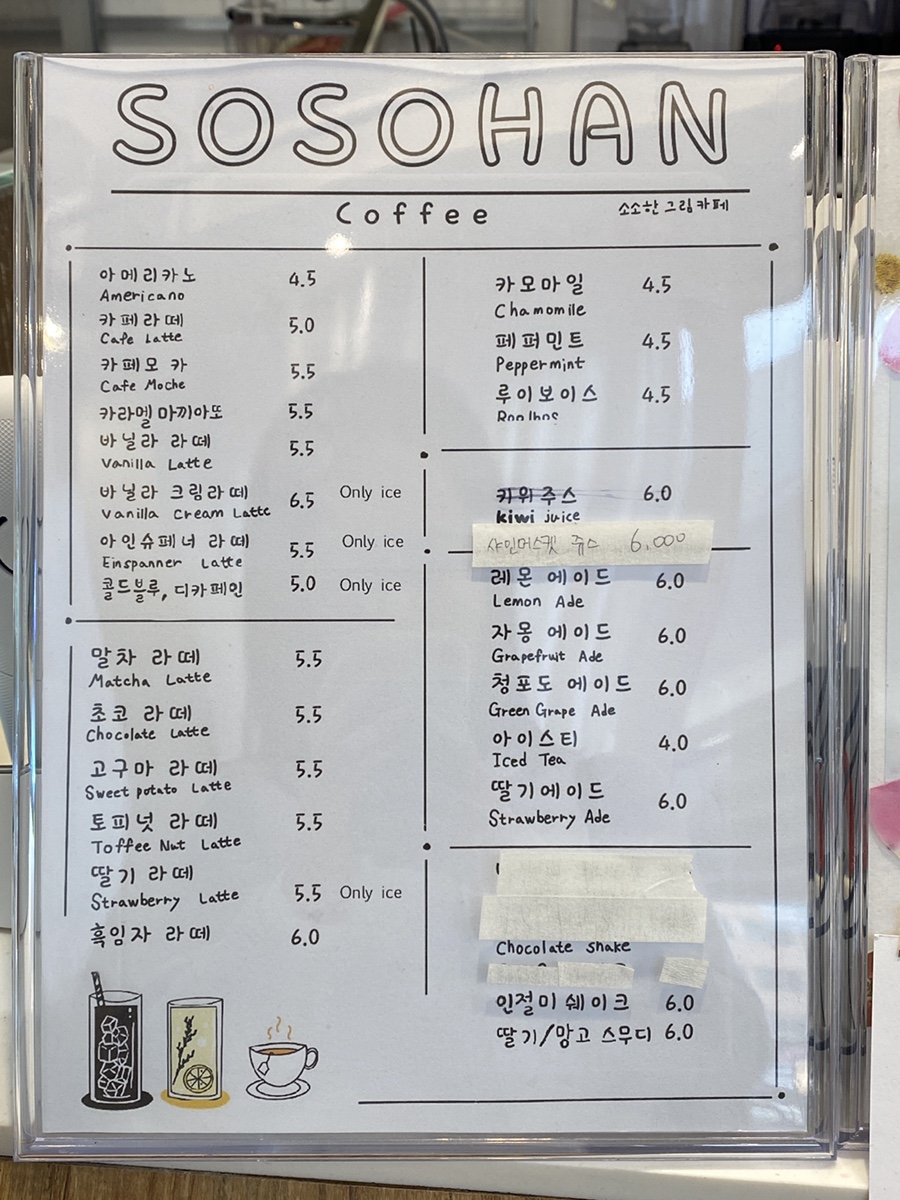 SOSOHAN
Coffee
소소한 그림카페
아메리카노 4.5
Americano
카페라떼 5.0
Cafe Latte
카페모카 5.5
Cafe Moche
카라멜마끼아또 5.5
바닐라 라떼 5.5
Vanilla Latte
바닐라 크림라떼 6.5 Only ice
Vanilla Cream Latte
아인슈페너 라떼 5.5 Only ice
Einspanner Latte
콜드브루, 디카페인 5.0 Only ice
말차 라떼 5.5
Matcha Latte
초코 라떼 5.5
Chocolate Latte
고구마 라떼 5.5
Sweet potato Latte
토피넛 라떼 5.5
Toffee Nut Latte
딸기 라떼
Strawberry Latte 5.5 Only ice
흑임자 라떼 6.0
카모마일 4.5
Chamomile
페퍼민트 4.5
Peppermint
루이보이스 4.5
키위주스 6.0
kiwi juice
샤인머스켓 쥬스 6,000
레몬 에이드 6.0
Lemon Ade
자몽 에이드 6.0
Grapefruit Ade
청포도 에이드 6.0
Green Grape Ade
아이스티 4.0
Iced Tea
딸기에이드 6.0
Strawberry Ade
Chocolate shake
인절미 쉐이크 6.0
딸기/망고 스무디 6.0